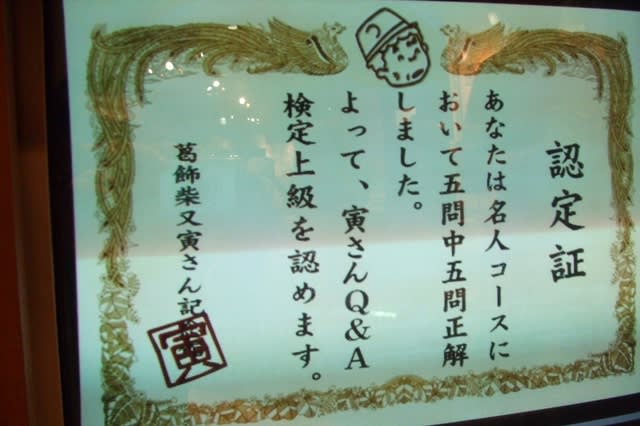 認定証
あなたは名人コースに
おいて五問中五問正解
しました。
よって、寅さんQ&A
検定上級を認めます。
葛飾柴又寅さん記
寅